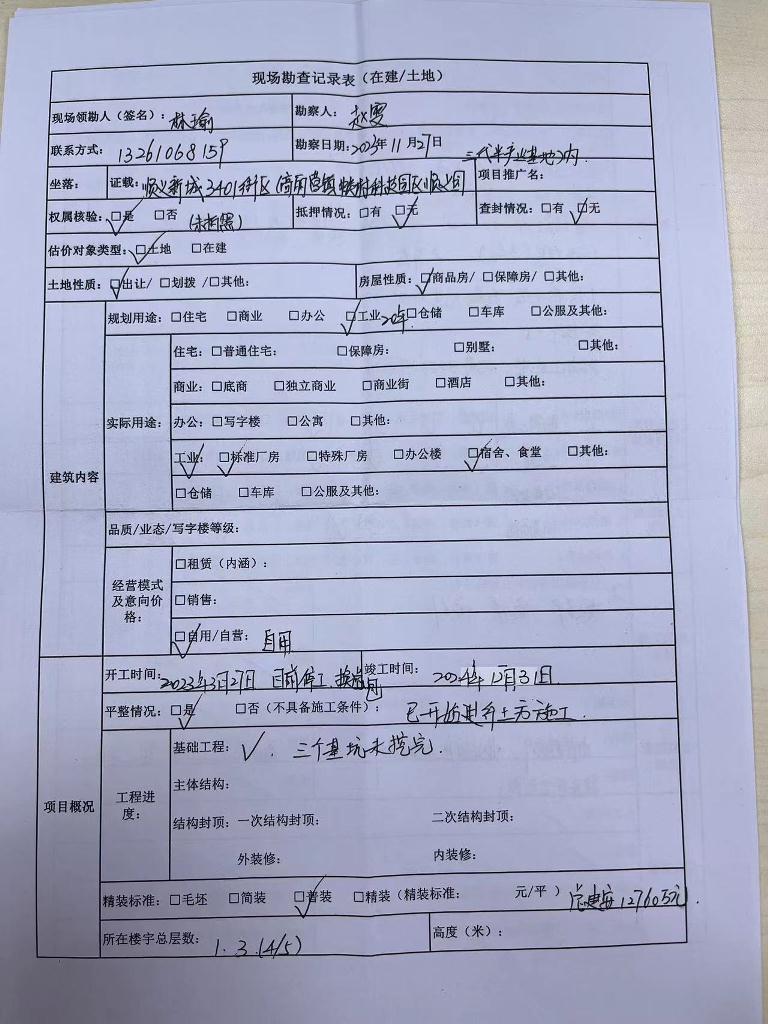 现场勘查记录表（在建/土地）
现场领勘人（签名）：林瑜 勘察人：赵雯
联系方式：13261068159 勘察日期：2023年11月27日
三代半产业基地内
坐落： 证载：顺义新城3401街区（高丽营镇 科技园区顺义园 项目推广名：
权属核验：☑是 □否 抵押情况：□有 ☑无 查封情况：□有 ☑无
估价对象类型：☑土地 □在建
土地性质：☑出让/ □划拨 /□其他： 房屋性质：☑商品房/ □保障房/ □其他：
建筑内容
规划用途：□住宅 □商业 □办公 ☑工业 20年 □仓储 □车库 □公服及其他：
实际用途：
住宅：□普通住宅： □保障房： □别墅： □其他：
商业：□底商 □独立商业 □商业街 □酒店 □其他：
办公：□写字楼 □公寓 □其他：
工业：✓ ☑标准厂房 □特殊厂房 □办公楼 ☑宿舍、食堂 □其他：
□仓储 □车库 □公服及其他：
品质/业态/写字楼等级：
经营模式及意向价格：
□租赁（内涵）：
□销售：
☑自用/自营： 自用
项目概况
开工时间：2023年3月27日 目前停工 竣工时间： 2024年12月31日
平整情况：☑是 □否（不具备施工条件）： 已开始进行土方施工.
工程进度：
基础工程：✓. 三个基坑未挖完.
主体结构：
结构封顶：一次结构封顶： 二次结构封顶：
外装修： 内装修：
精装标准：□毛坯 □简装 ☑普装 □精装（精装标准： 元/平） 总建安12760万元.
所在楼宇总层数： 1. 3.(4/5) 高度（米）：